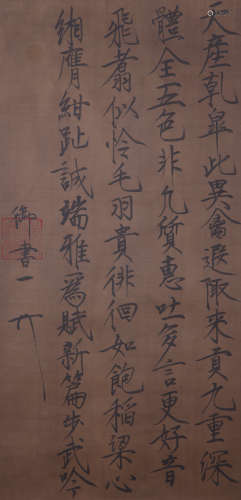 天產乾皐此異禽遐陬來貢九重深
體全五色非凡質惠吐多言更好音
飛翥似怜毛羽貴徘徊如飽稻粱心
緗膺紺趾誠端雅爲賦新篇步武吟
御書